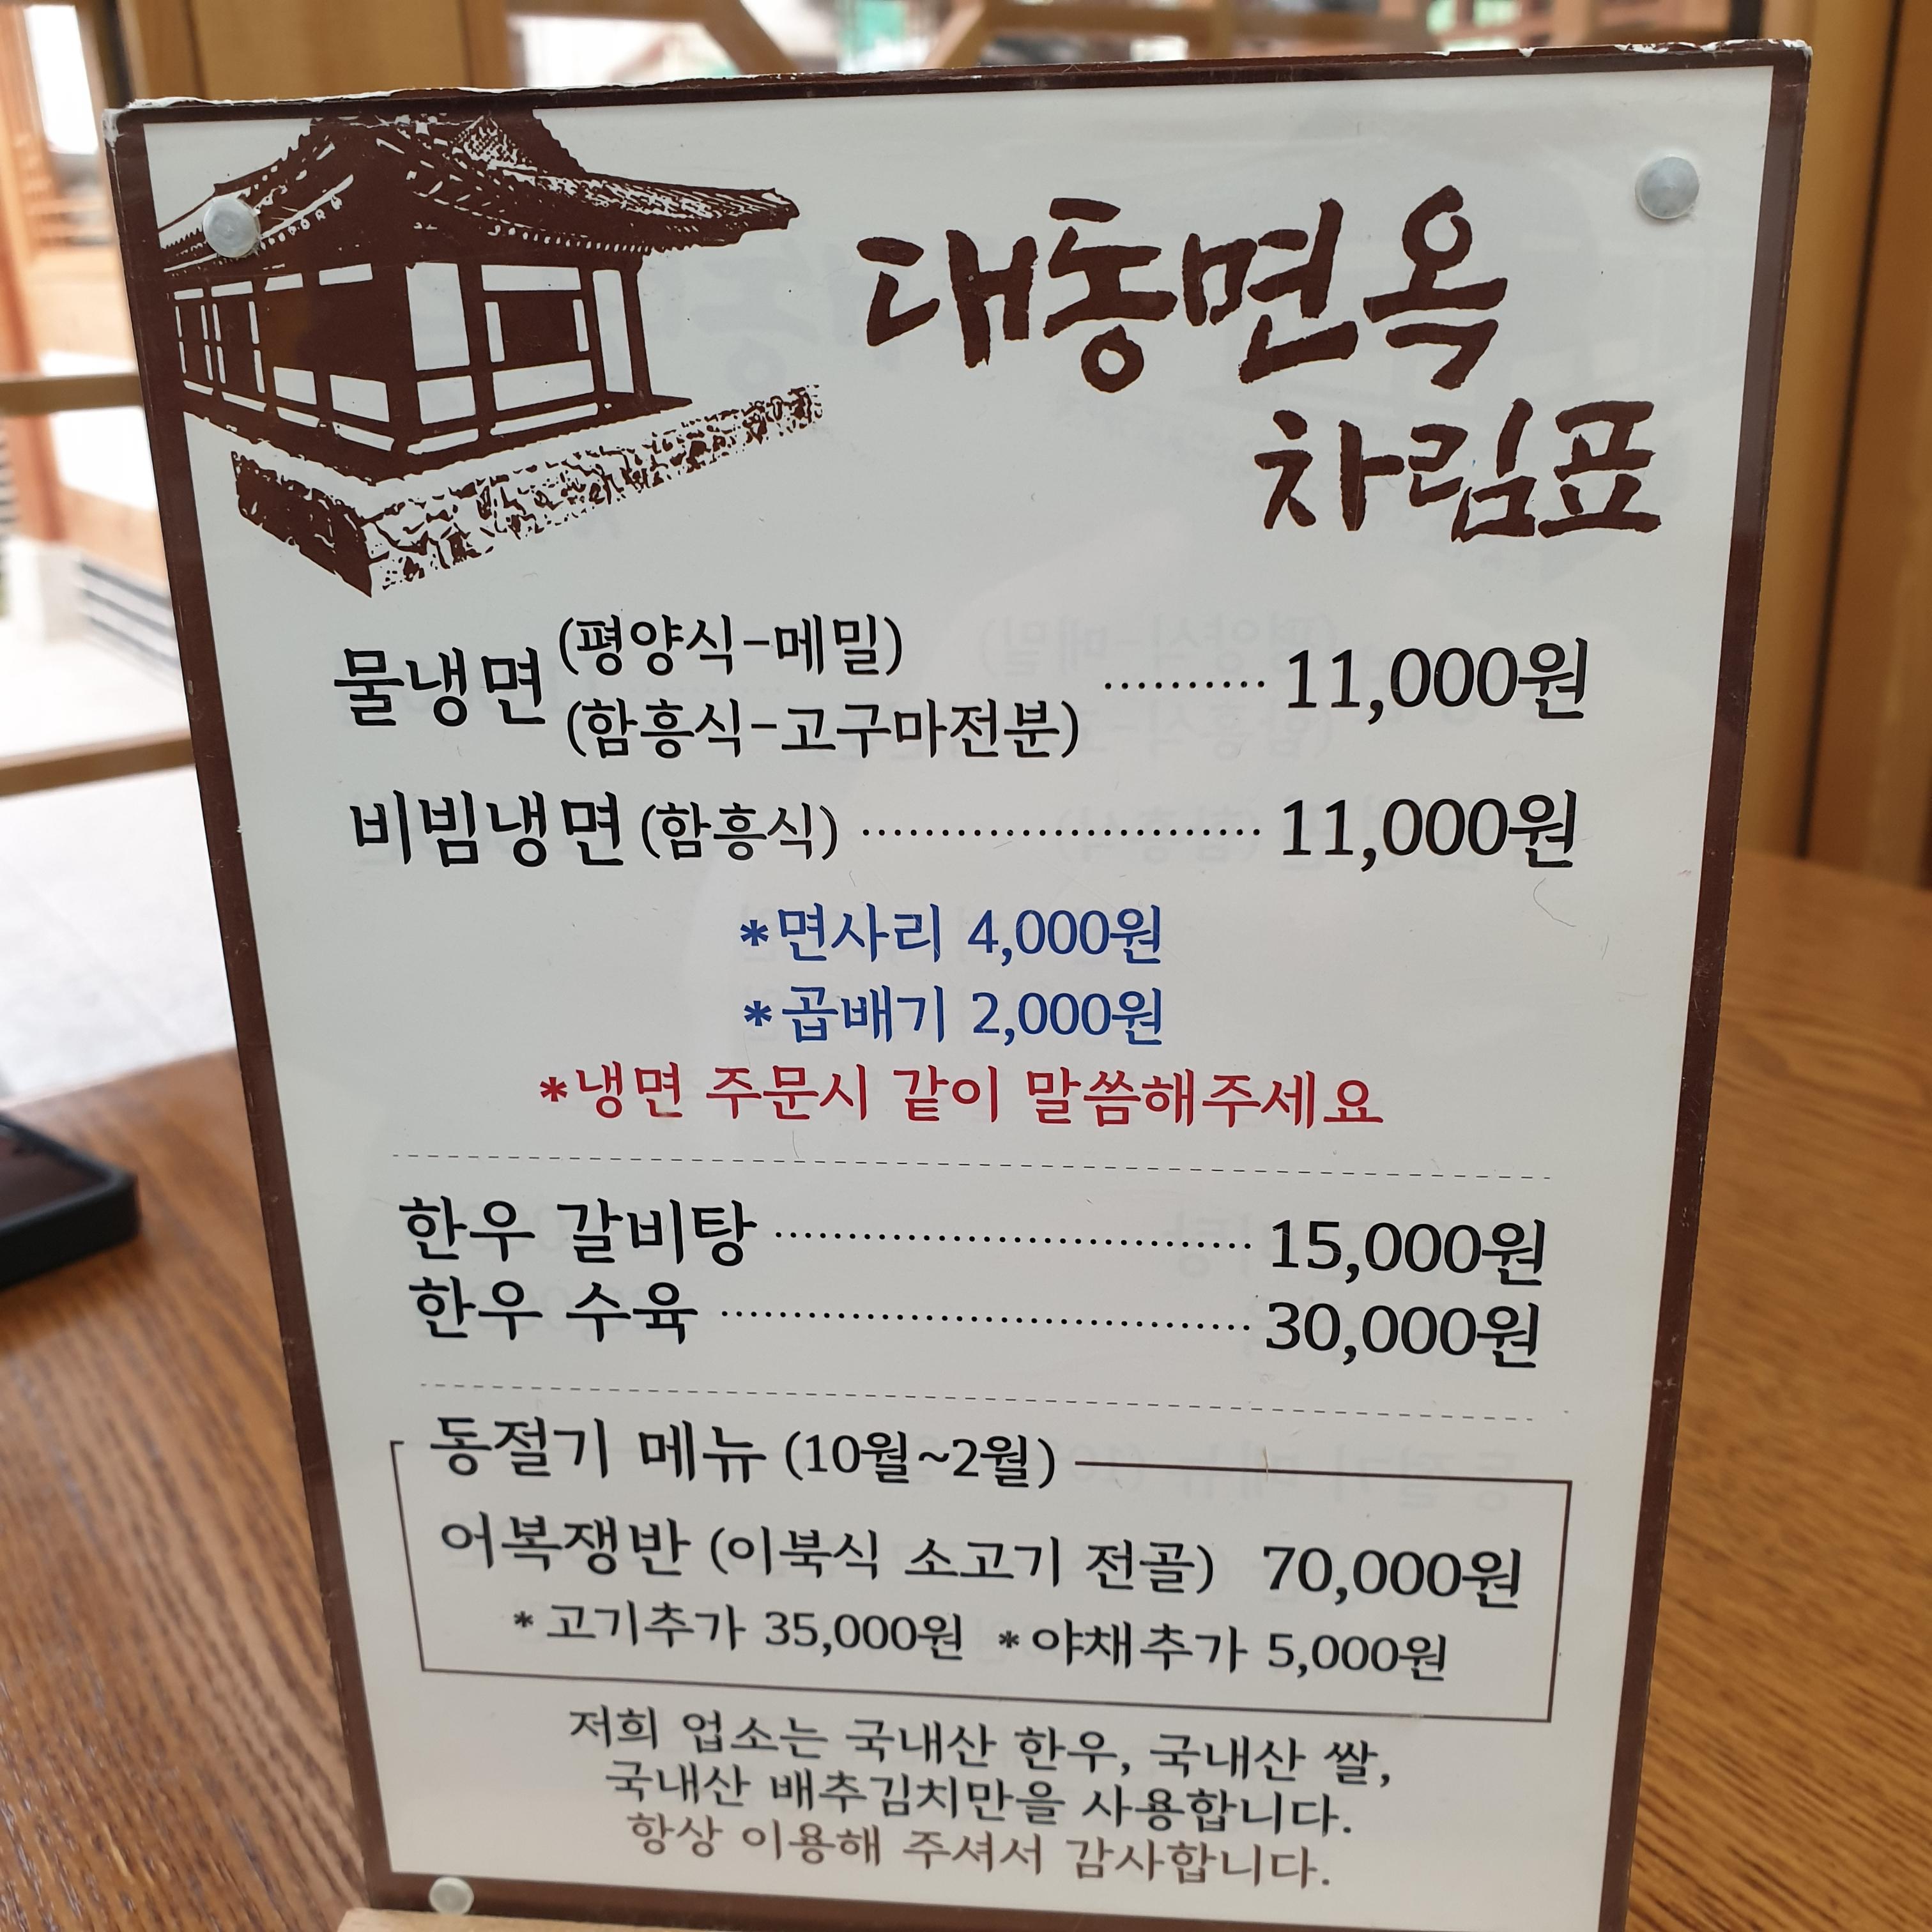 대동면옥
차림표
물냉면 (평양식-메밀) (함흥식-고구마전분) ·········· 11,000원
비빔냉면 (함흥식) ·························· 11,000원
*면사리 4,000원
*곱배기 2,000원
*냉면 주문시 같이 말씀해주세요
한우 갈비탕 ·································· 15,000원
한우 수육 ······································ 30,000원
동절기 메뉴 (10월~2월)
어복쟁반 (이북식 소고기 전골) 70,000원
* 고기추가 35,000원 *야채추가 5,000원
저희 업소는 국내산 한우, 국내산 쌀,
국내산 배추김치만을 사용합니다.
항상 이용해 주셔서 감사합니다.